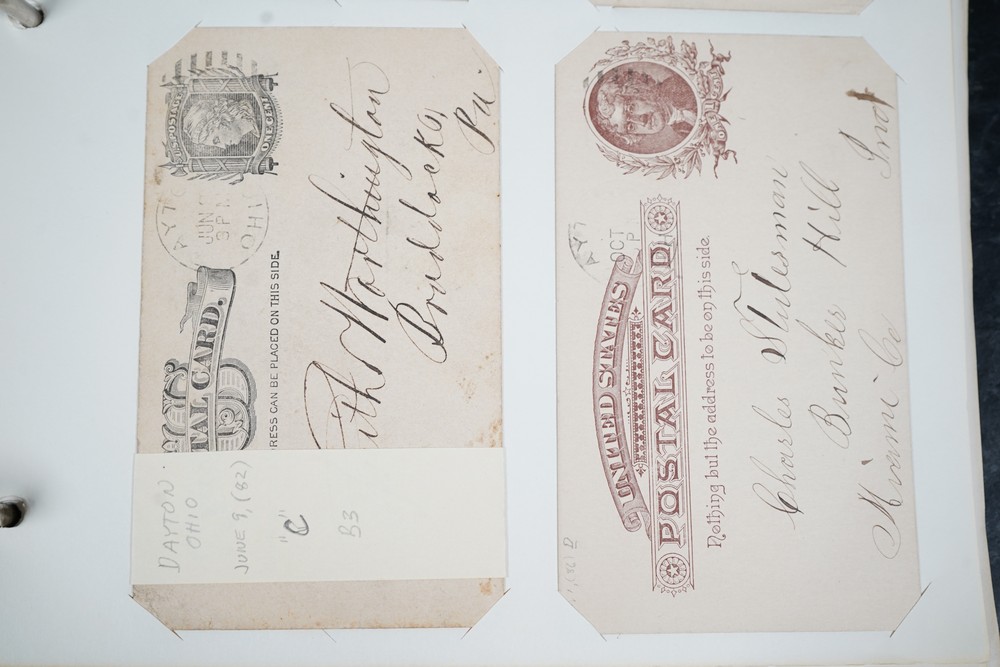 POSTAGE
ONE CENT
JUN 9
3 PM
OHIO
TAL CARD.
RESS CAN BE PLACED ON THIS SIDE.
Worthington
Braddocks,
Pa.
DAYTON
OHIO
JUNE 9, (82)
"C"
B3
OCT
UNITED STATES
POSTAL CARD
Nothing but the address to be on this side.
Charles Stutesman
Bunker Hill
Miami Co Ind